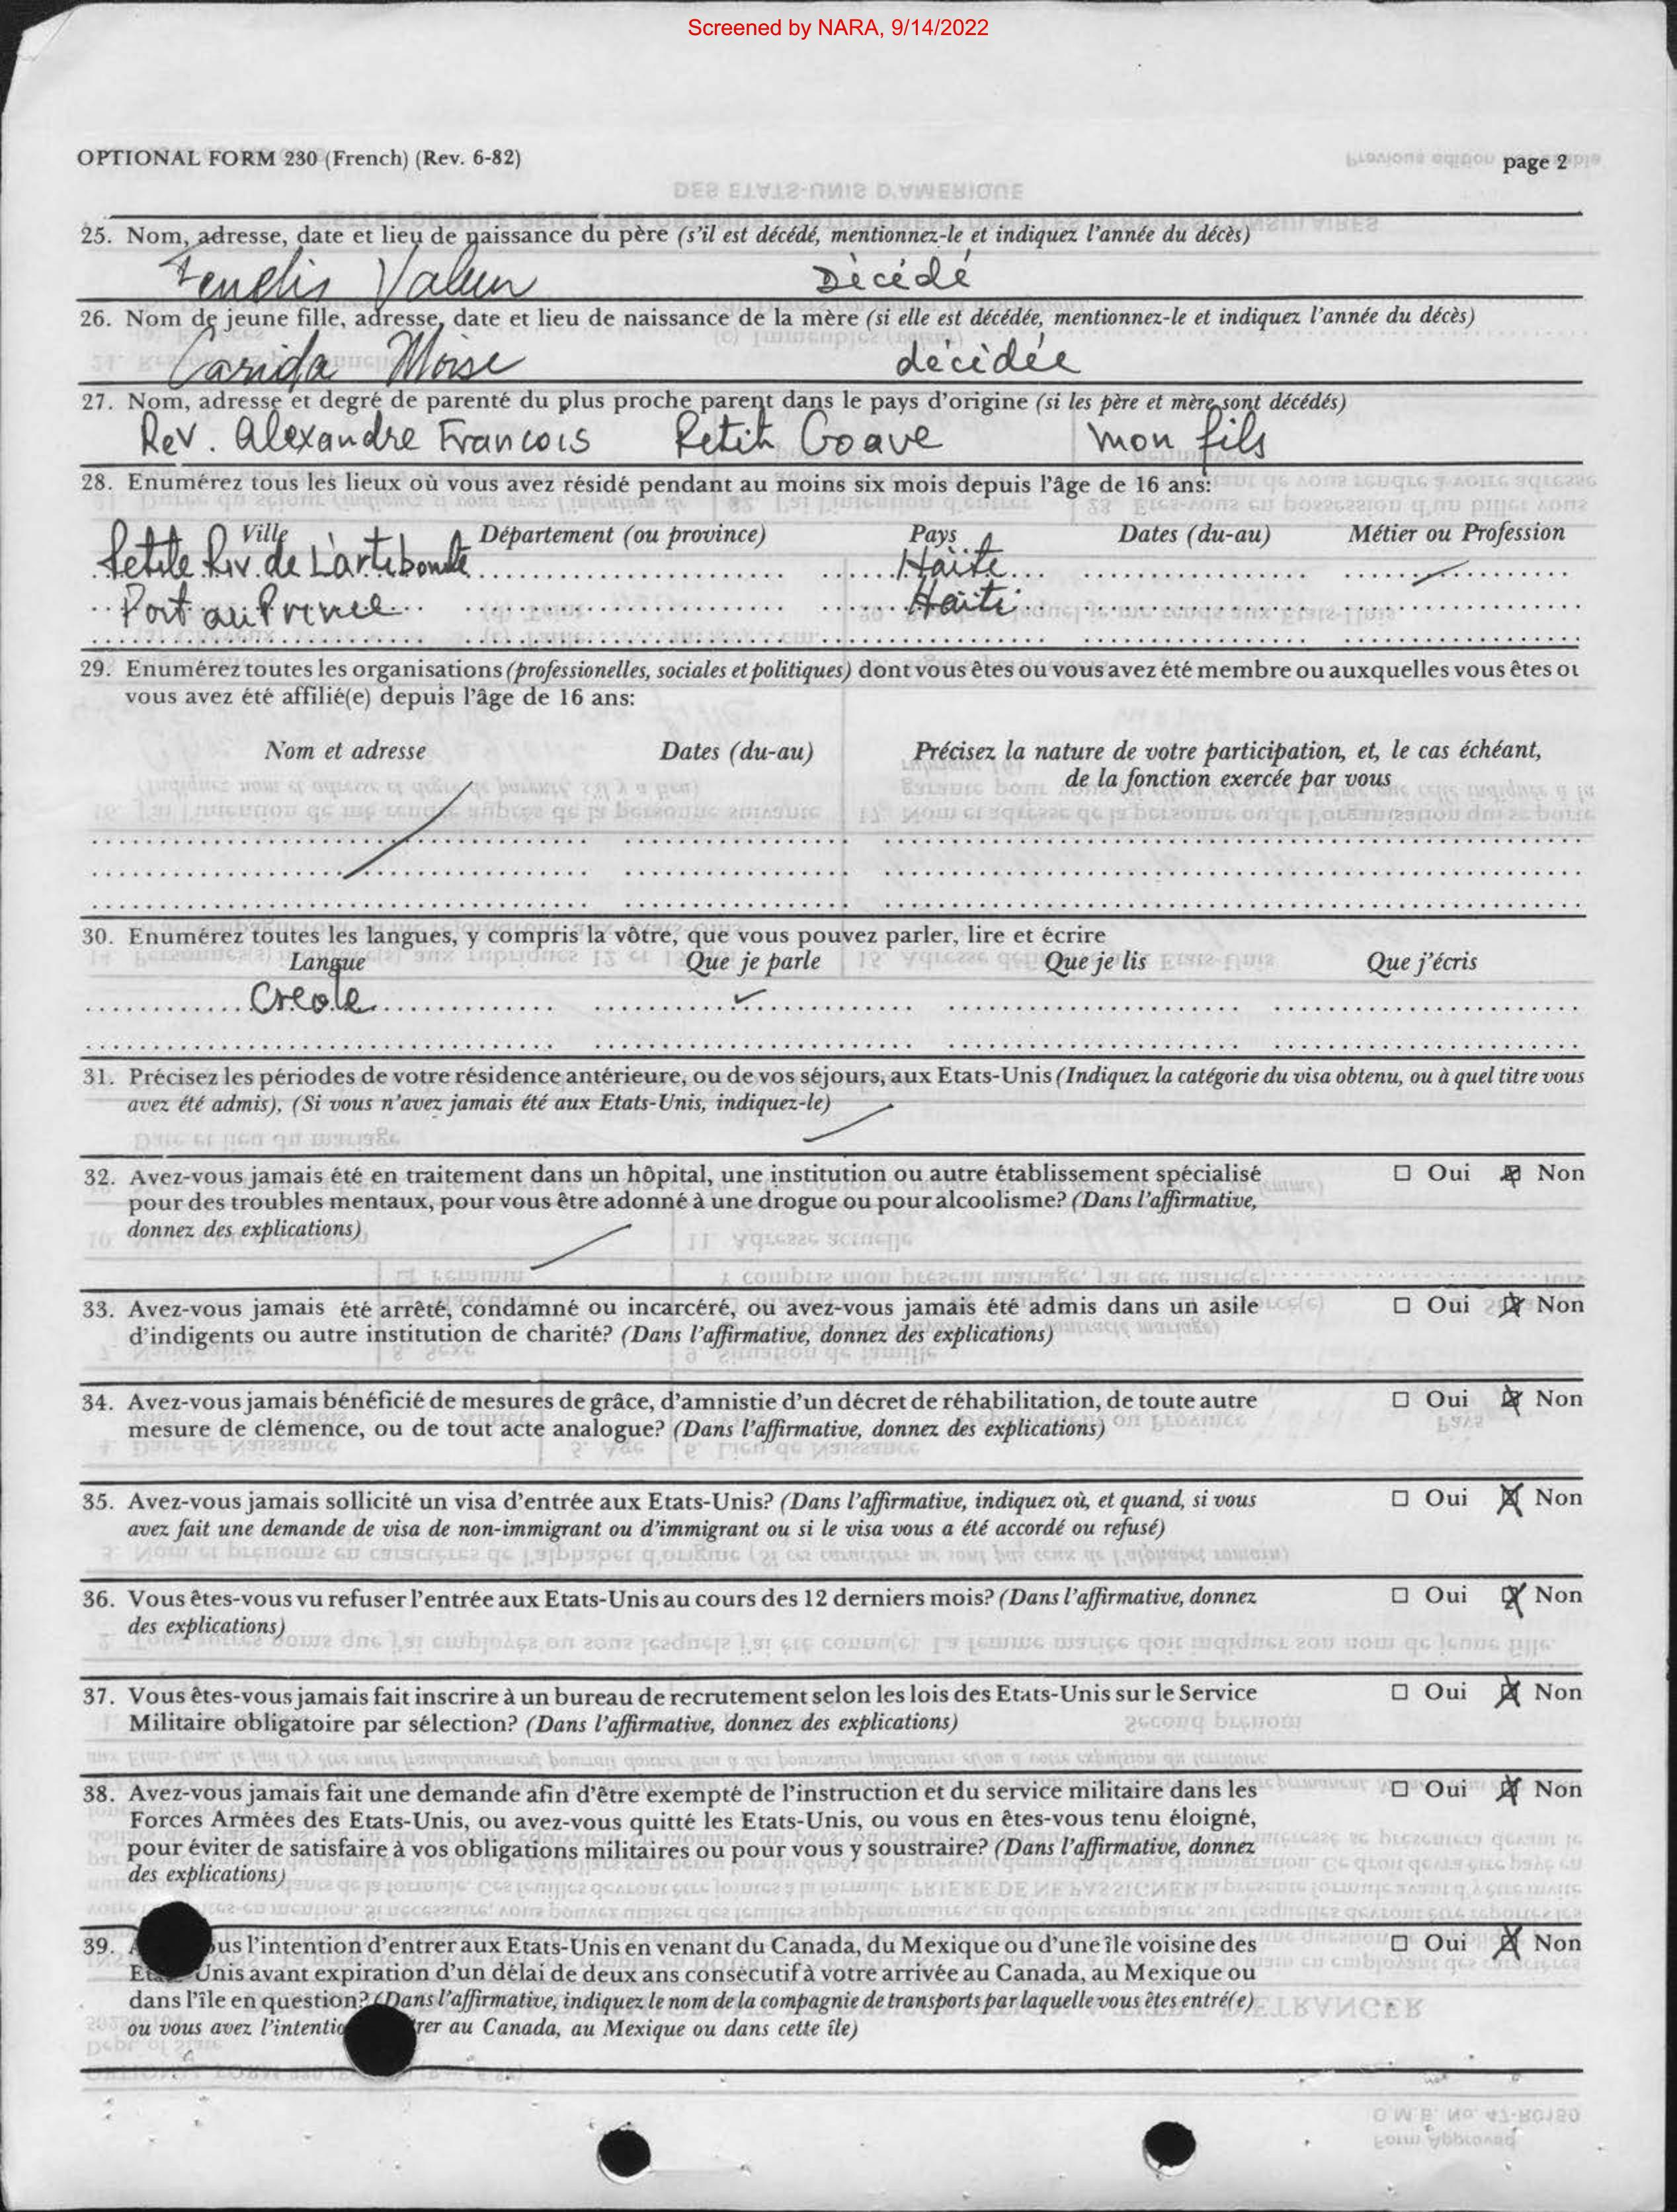 Screened by NARA, 9/14/2022
OPTIONAL FORM 230 (French) (Rev. 6-82)
page 2
25. Nom, adresse, date et lieu de naissance du père (s'il est décédé, mentionnez-le et indiquez l'année du décès)
Dècédé
26. Nom de jeune fille, adresse, date et lieu de naissance de la mère (si elle est décédée, mentionnez-le et indiquez l'année du décès)
Carida Moise décidée
27. Nom, adresse et degré de parenté du plus proche parent dans le pays d'origine (si les père et mère sont décédés)
Rev. Alexandre Francois Petit Goave mon fils
28. Enumérez tous les lieux où vous avez résidé pendant au moins six mois depuis l'âge de 16 ans:
Ville Département (ou province) Pays Dates (du-au) Métier ou Profession
Petite Riv. de L'artibonite Haïti
Port au Prince Haïti
29. Enumérez toutes les organisations (professionelles, sociales et politiques) dont vous êtes ou vous avez été membre ou auxquelles vous êtes ou
vous avez été affilié(e) depuis l'âge de 16 ans:
Nom et adresse Dates (du-au) Précisez la nature de votre participation, et, le cas échéant,
de la fonction exercée par vous
30. Enumérez toutes les langues, y compris la vôtre, que vous pouvez parler, lire et écrire
Langue Que je parle Que je lis Que j'écris
Creole ✓
31. Précisez les périodes de votre résidence antérieure, ou de vos séjours, aux Etats-Unis (Indiquez la catégorie du visa obtenu, ou à quel titre vous
avez été admis), (Si vous n'avez jamais été aux Etats-Unis, indiquez-le)
32. Avez-vous jamais été en traitement dans un hôpital, une institution ou autre établissement spécialisé ☐ Oui ☒ Non
pour des troubles mentaux, pour vous être adonné à une drogue ou pour alcoolisme? (Dans l'affirmative,
donnez des explications)
33. Avez-vous jamais été arrêté, condamné ou incarcéré, ou avez-vous jamais été admis dans un asile ☐ Oui ☒ Non
d'indigents ou autre institution de charité? (Dans l'affirmative, donnez des explications)
34. Avez-vous jamais bénéficié de mesures de grâce, d'amnistie d'un décret de réhabilitation, de toute autre ☐ Oui ☒ Non
mesure de clémence, ou de tout acte analogue? (Dans l'affirmative, donnez des explications)
35. Avez-vous jamais sollicité un visa d'entrée aux Etats-Unis? (Dans l'affirmative, indiquez où, et quand, si vous ☐ Oui ☒ Non
avez fait une demande de visa de non-immigrant ou d'immigrant ou si le visa vous a été accordé ou refusé)
36. Vous êtes-vous vu refuser l'entrée aux Etats-Unis au cours des 12 derniers mois? (Dans l'affirmative, donnez ☐ Oui ☒ Non
des explications)
37. Vous êtes-vous jamais fait inscrire à un bureau de recrutement selon les lois des Etats-Unis sur le Service ☐ Oui ☒ Non
Militaire obligatoire par sélection? (Dans l'affirmative, donnez des explications)
38. Avez-vous jamais fait une demande afin d'être exempté de l'instruction et du service militaire dans les ☐ Oui ☒ Non
Forces Armées des Etats-Unis, ou avez-vous quitté les Etats-Unis, ou vous en êtes-vous tenu éloigné,
pour éviter de satisfaire à vos obligations militaires ou pour vous y soustraire? (Dans l'affirmative, donnez
des explications)
39. l'intention d'entrer aux Etats-Unis en venant du Canada, du Mexique ou d'une île voisine des ☐ Oui ☒ Non
Unis avant expiration d'un délai de deux ans consécutif à votre arrivée au Canada, au Mexique ou
dans l'île en question? (Dans l'affirmative, indiquez le nom de la compagnie de transports par laquelle vous êtes entré(e)
ou vous avez au Canada, au Mexique ou dans cette île)